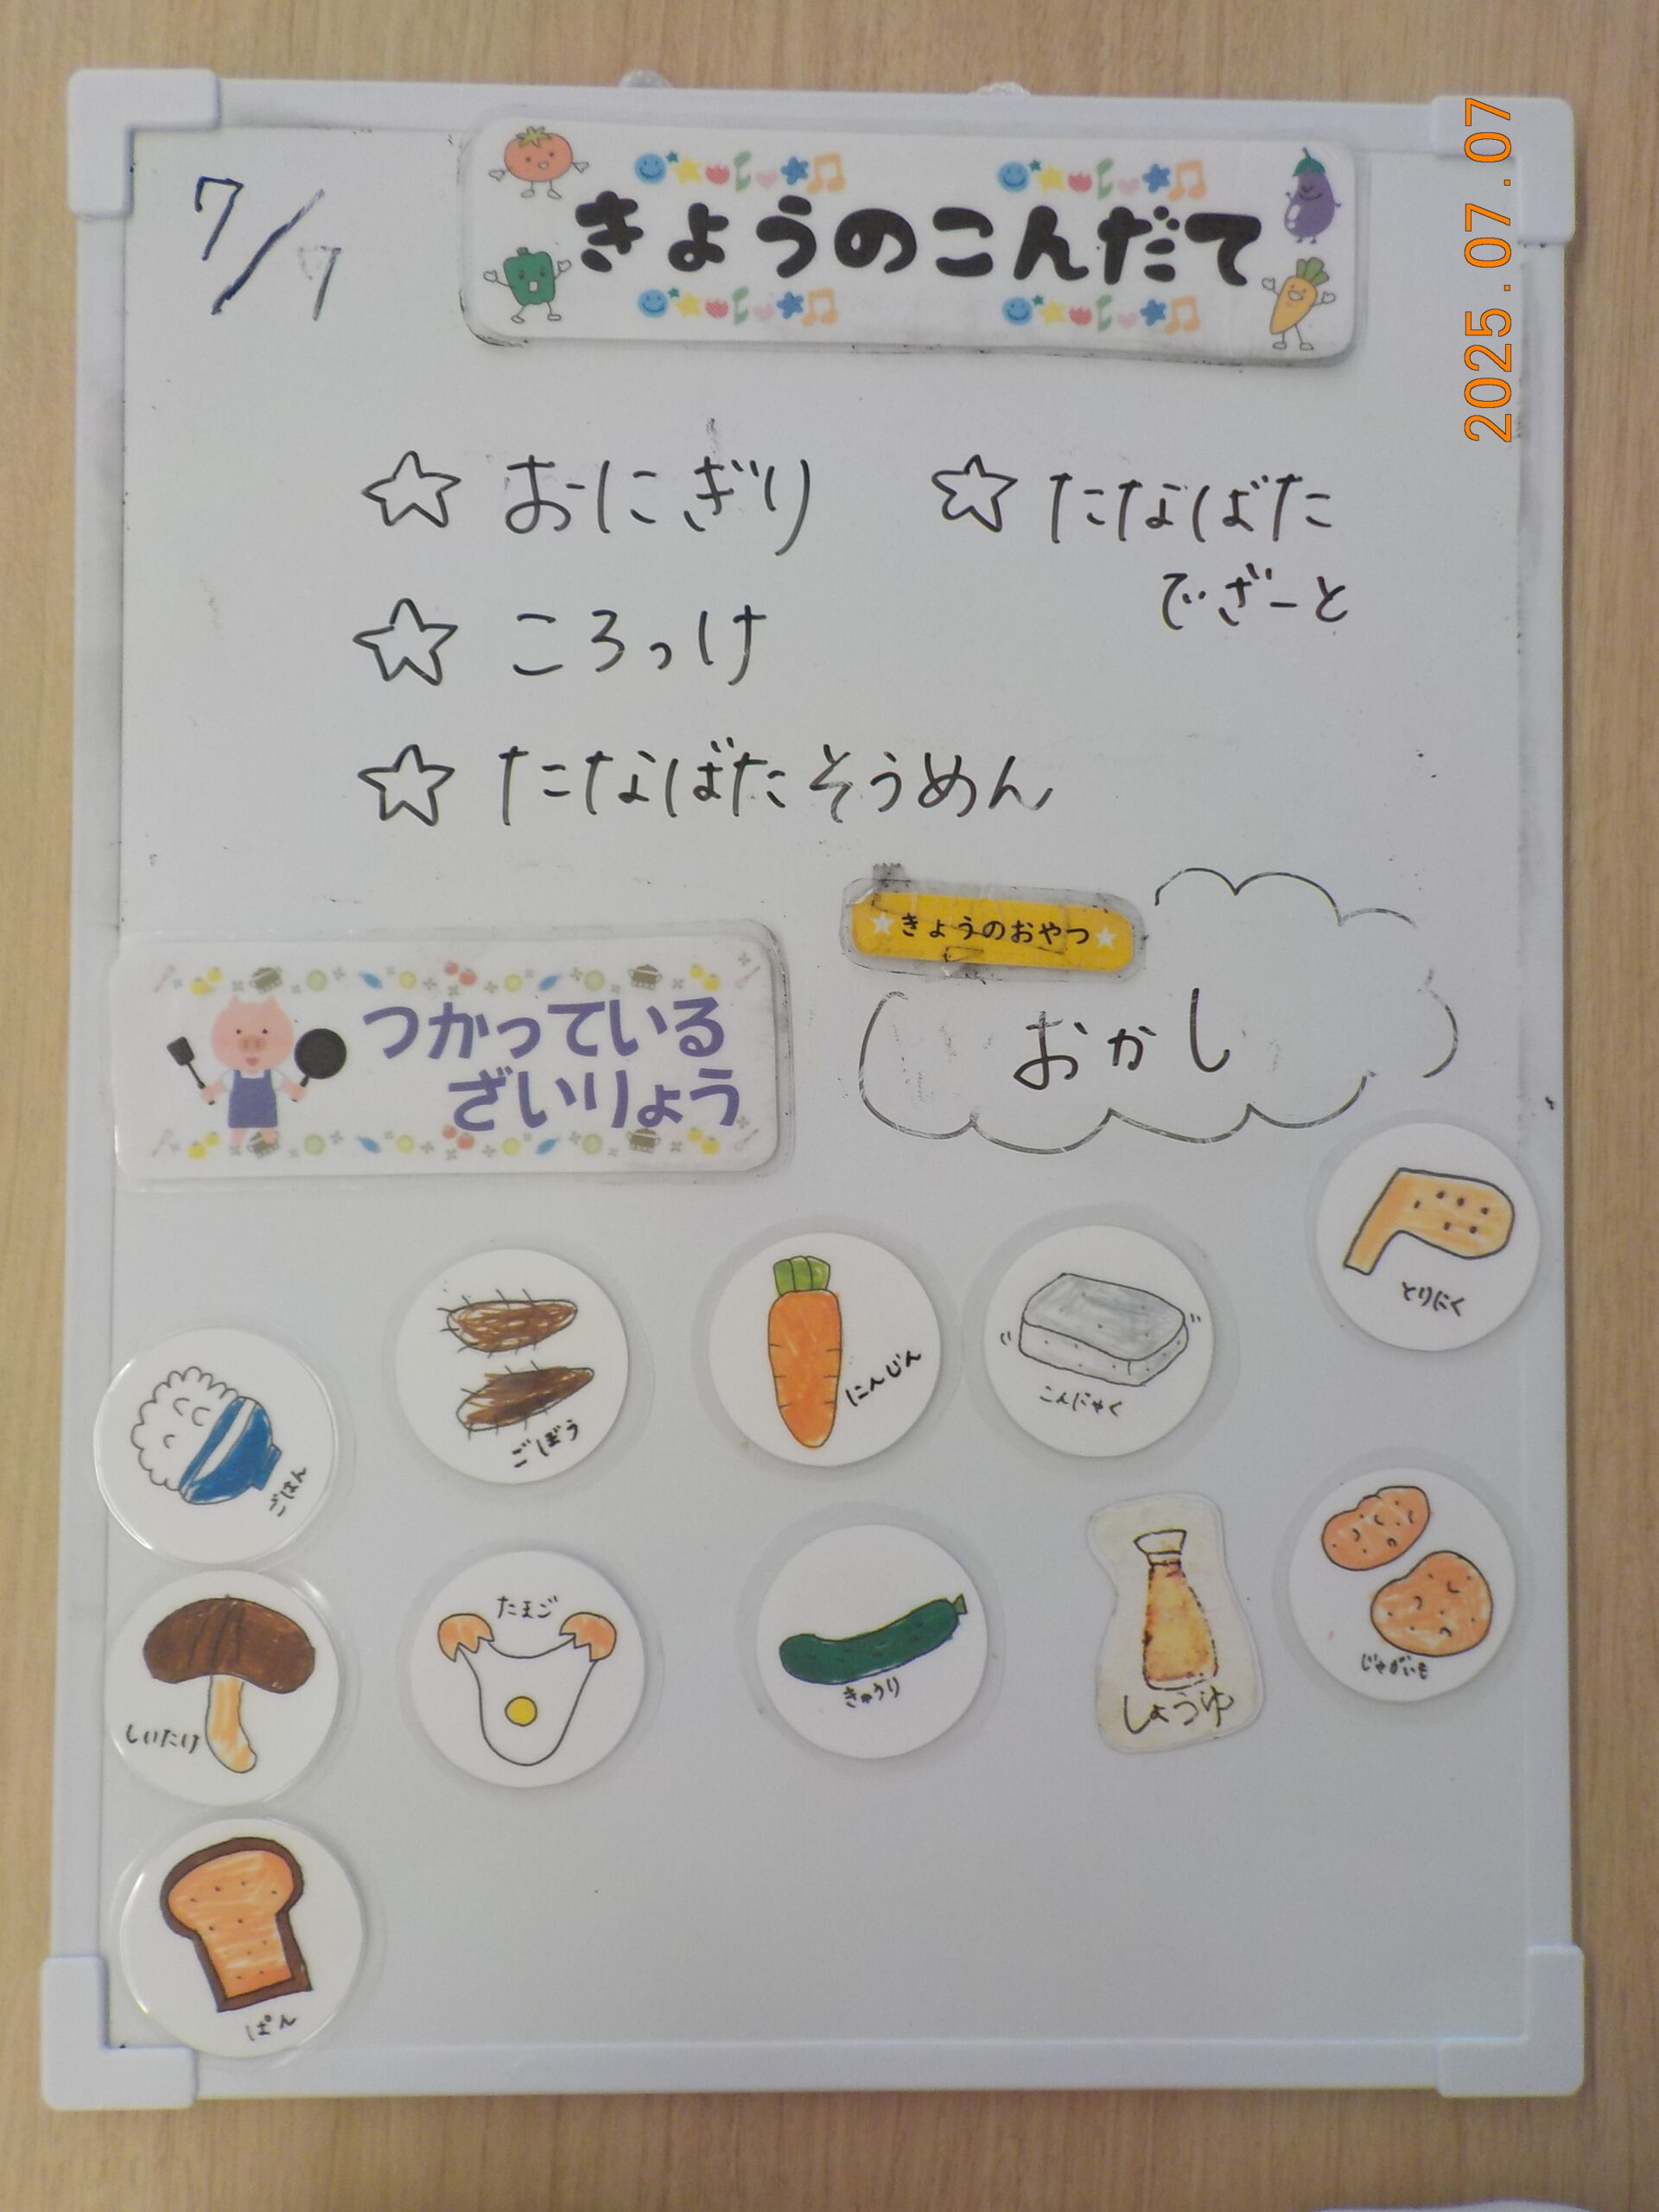 7/7
きょうのこんだて
2025.07.07
☆ おにぎり
☆ ころっけ
☆ たなばたそうめん
☆ たなばた
でざーと
きょうのおやつ
おかし
つかっている
ざいりょう
とりにく
ごはん
ごぼう
にんじん
こんにゃく
しいたけ
たまご
きゅうり
しょうゆ
じゃがいも
ぱん